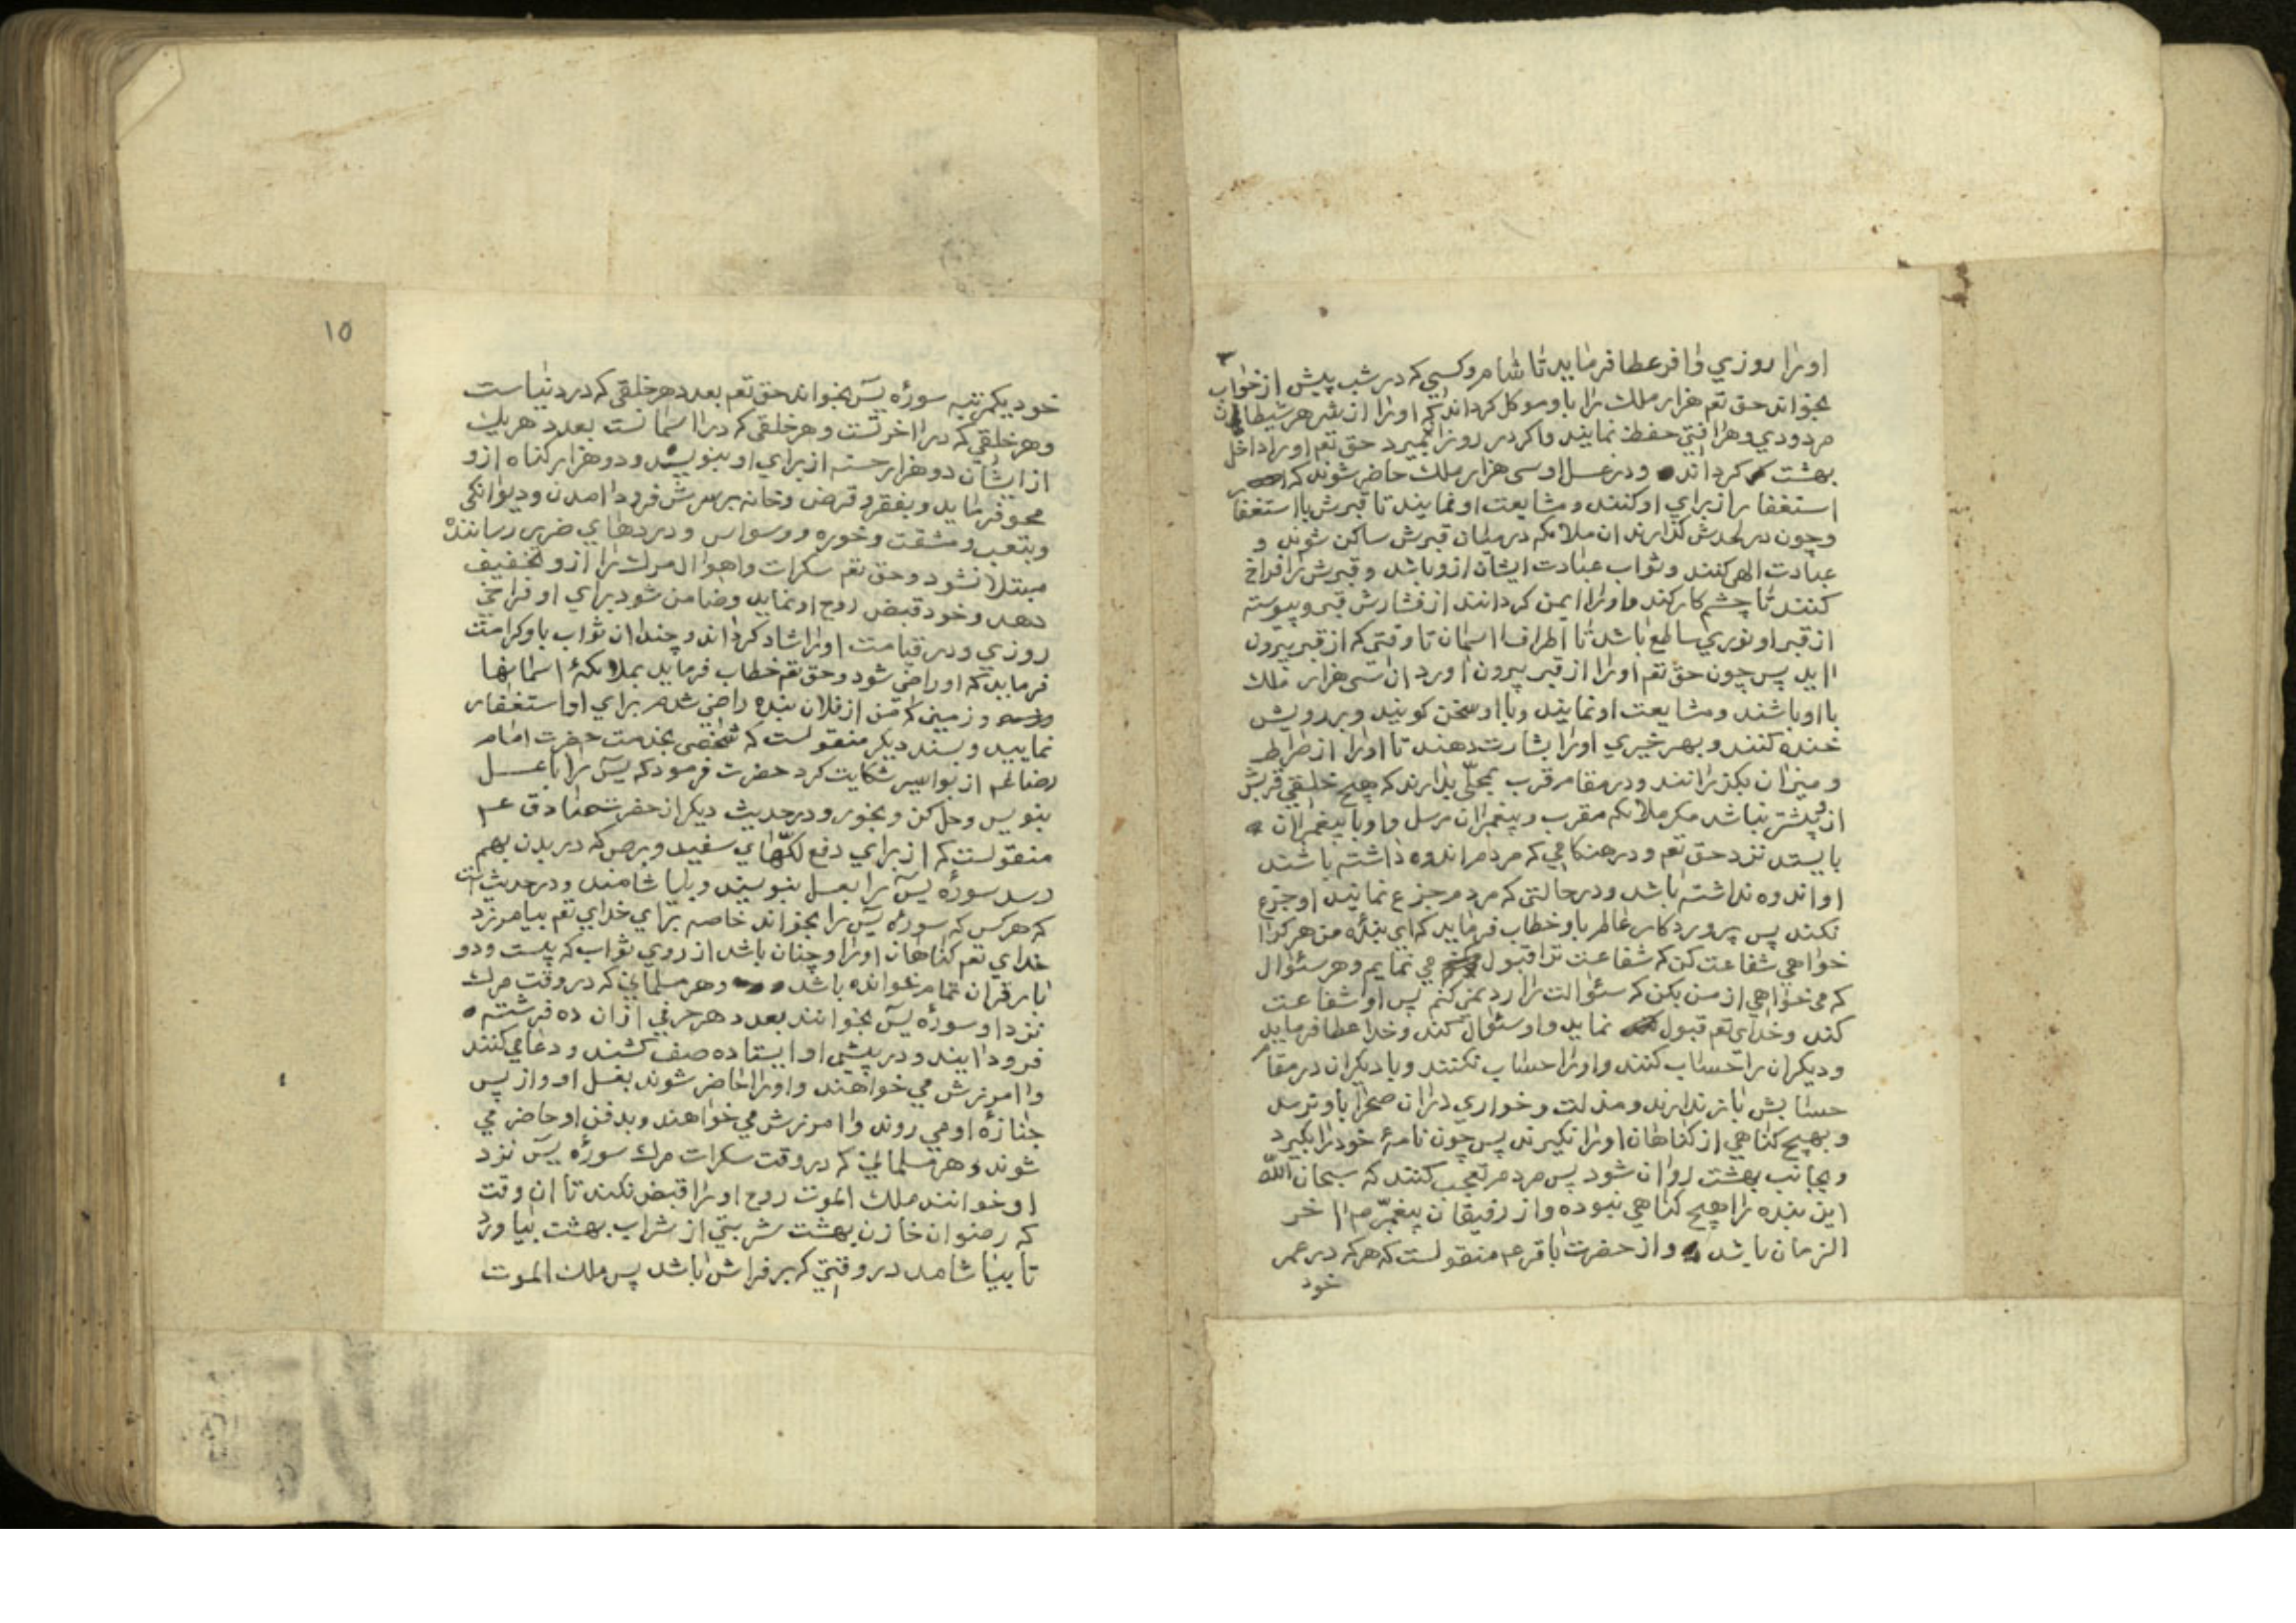 اورا روزي وافر عطا فرمايد تا شام وكسي كه در شب پيش از خواب
بخواند حق تعم هزار ملك را باو موكل كرداند كه اورا از شر هر شيطان
مردودي وهر افتي حفظ نمايند واكر در روز بميرد حق تعم اورا داخل
بهشت كرداند ودر غسل او سي هزار ملك حاضر شوند كه
استغفار از براي او كنند ومشايعت او نمايند تا قبرش با استغفا
وچون در لحدش كذارند ان ملائكه در ميان قبرش ساكن شوند و
عبادت الهي كنند وثواب عبادت ايشان ازو باشد وقبرش را فراخ
كنند تا چشم كار كند واورا ايمن كردانند از فشارش قبر وپيوسته
از قبر او نوري ساطع باشد تا اطراف اسمان تا وقتي كه از قبر بيرون
ايد پس چون حق تعم اورا از قبر بيرون اورد ان سي هزار ملك
با او باشند ومشايعت او نمايند وبا او سخن كويند وبر رويش
خنده كنند وبهر خيري اورا بشارت دهند تا اورا از صراط
وميزان بكذرانند ودر مقام قرب بمحلي بدارند كه هيچ خلقي قربش
ازو پيشتر نباشد مكر ملائكه مقرب وپيغمبران مرسل واو با پيغمبران
بايستد نزد حق تعم ودر هنكامي كه مردم اندوه داشته باشند
او اندوه نداشته باشد ودر حالتي كه مردم جزع نمايند او جزع
نكند پس پروردكار عالم باو خطاب فرمايد كه اي بنده من هر كرا
خواهي شفاعت كن كه شفاعت ترا قبول مي نمايم وهر سئوال
كه مي خواهي از من بكن كه سئوالت را رد نمي كنم پس او شفاعت
كند وخداي تعم قبول نمايد واو سئوال كند وخدا عطا فرمايد
وديكران را حساب كنند واورا حساب نكنند وبا ديكران در مقام
حسابش باز ندارند ومذلت وخواري دران صحرا باو نرسد
وبهيچ كناهي از كناهان اورا نكيرند پس چون نامهٔ خود را بكيرد
وبجانب بهشت روان شود پس مردم تعجب كنند كه سبحان الله
اين بنده را هيچ كناهي نبوده واز رفيقان پيغمبر اخر
الزمان باشد واز حضرت باقر عم منقولست كه هر كه در عمر
خود
١٥
خود يكمرتبه سورهٔ يس بخواند حق تعم بعدد هر خلقي كه در دنياست
وهر خلقي كه در اخرتست وهر خلقي كه در اسمانست بعدد هر يك
از ايشان دو هزار حسنه از براي او بنويسد ودو هزار كناه ازو
محو فرمايد وبفقر وقرض وخانه بر سرش فرود امدن وديوانكي
وبتعب ومشقت وخوره ووسواس ودردهاي ضرر رساننده
مبتلا نشود وحق تعم سكرات واهوال مرك را ازو تخفيف
دهد وخود قبض روح او نمايد وضامن شود براي او فراخي
روزي ودر قيامت اورا شاد كرداند وچندان ثواب باو كرامت
فرمايد كه او راضي شود وحق تعم خطاب فرمايد بملائكهٔ اسمانها
وزمين كه من از فلان بنده راضي شدم براي او استغفار
نماييد وبسند ديكر منقولست كه شخصي بخدمت حضرت امام
رضا عم از بواسير شكايت كرد حضرت فرمود كه يس را با عسل
بنويس وحل كن وبخور ودر حديث ديكر از حضرت صادق عم
منقولست كه از براي دفع لكّهاي سفيد وبرص كه در بدن بهم
رسد سورهٔ يس را بعسل بنويسند وبياشامند ودر حديث است
كه هر كس كه سورهٔ يس را بخواند خاصه براي خداي تعم بيامرزد
خداي تعم كناهان اورا وچنان باشد از روي ثواب كه بيست ودو
بار قران تمام خوانده باشد وهر مسلماني كه در وقت مرك
نزد او سورهٔ يس بخوانند بعدد هر حرفي ازان ده فرشته
فرود ايند ودر پيش او ايستاده صف كشند ودعا مي كنند
وامرزش مي خواهند واورا حاضر شوند بغسل او واز پس
جنازهٔ او مي روند وامرزش مي خواهند وبدفن او حاضر مي
شوند وهر مسلماني كه در وقت سكرات مرك سورهٔ يس نزد
او خوانند ملك الموت روح اورا قبض نكند تا ان وقت
كه رضوان خازن بهشت شربتي از شراب بهشت بياورد
تا بياشامد در وقتي كه بر فراش باشد پس ملك الموت